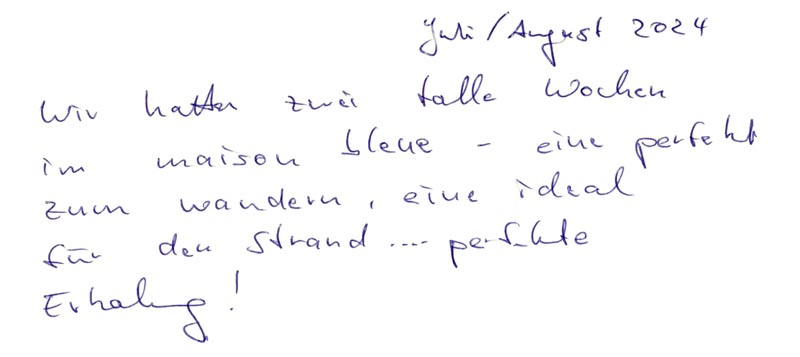 Juli/August 2024
Wir hatten zwei tolle Wochen
im maison bleue - eine perfekt
zum wandern, eine ideal
für den Strand .... perfekte
Erholung!